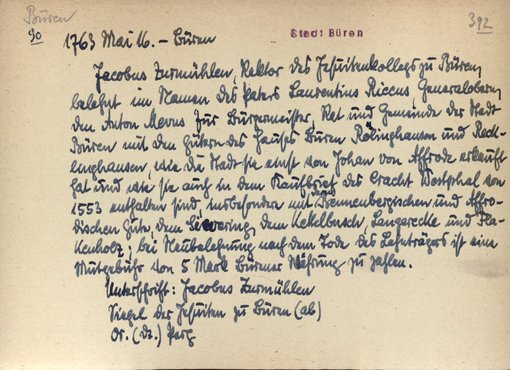 Büren
90
392
1763 Mai 16. – Büren
Stadt Büren
Jacobus Zurmühlen, Rektor des Jesuitenkollegs zu Büren,
belehnt im Namen des Paters Laurentius Riccus Generalobern
den Anton Mevus für Bürgermeister, Rat und Gemeinde der Stadt
Büren mit den Gütern des Hauses Büren Rödinghausen und Reck-
linghausen, wie die Stadt sie einst von Johan von Affrode erkauft
hat und wie sie auch in dem Kaufbrief des Cracht Westphal von
1553 enthalten sind, insbesondere mit Brennenbergischen und Affro-
dischen Gute, dem Siewering, dem Kekelbusch, Langerecke und Ha-
kenholz; bei Neubelehnung nach dem Tode des Lehnträgers ist eine
Mutgebühr von 5 Mark Bürener Währung zu zahlen.
Unterschrift: Jacobus Zurmühlen
Siegel der Jesuiten zu Büren (ab)
Or. (Dt.) Perg.